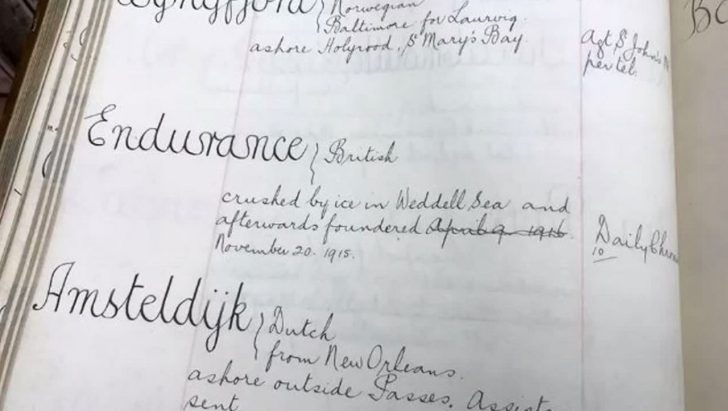 Norwegian
Baltimore for Laurvig.
ashore Holyrood, St Mary's Bay.
Agt St John's N
per tel.
Endurance } British
crushed by ice in Weddell Sea and
afterwards foundered April 9 1916
November 20. 1915.
Daily Chron
10
Amsteldijk } Dutch
from New Orleans.
ashore outside Passes. Assist
sent